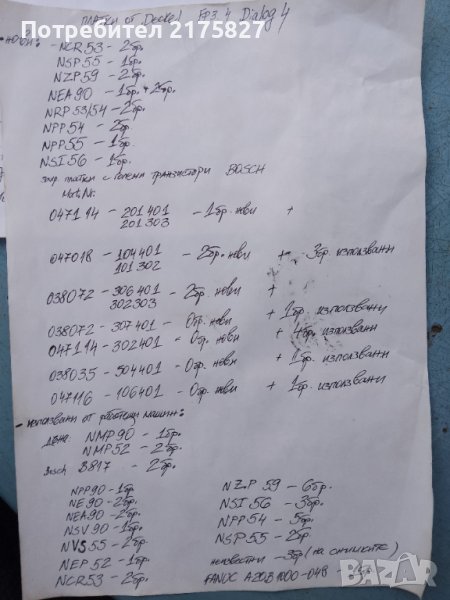 Потребител 2175827
платки от Deckel FP3.4 Dialog 4
- нови:
- NCR53 - 2бр.
NSP55 - 1бр.
NZP59 - 2бр.
NEA90 - 1бр. + 2бр.
NRP 53/54 - 2бр.
NPP54 - 2бр
NPP55 - 1бр.
NSI56 - 1бр.
платки с големи транзистори BOSCH
047194 - 201401 - 1бр. нови +
201303
047018 - 104401 - 2бр. нови + 3бр. използвани
101302
038072 - 306401 - 2бр. нови +
302303
038072 - 307401 - 0бр. нови + 1бр. използвани
047194 - 302401 - 0бр. нови + 4бр. използвани
038035 - 504401 - 0бр. нови + 1бр. използвани
047116 - 106401 - 0бр. нови + 1бр. използвани
- използвани от работещи машини:
NMP90 - 1бр.
NMP52 - 2бр.
Bosch B817 - 2бр.
NPP90 - 1бр
NE90 - 2бр.
NEA90 - 2бр.
NSV90 - 1бр.
NVS55 - 2бр.
NEP52 - 1бр.
NCR53 - 2бр.
NZP 59 - 6бр.
NSI 56 - 3бр.
NPP54 - 5бр.
NSP55 - 2бр
неизвестни - 3бр (на снимките)
FANUC A20B1000-048
bazar